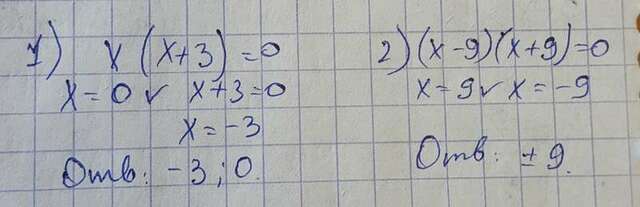 1) x(x+3)=0
x=0 ∨ x+3=0
x=-3
Отв: -3; 0.
2) (x-9)(x+9)=0
x=9 ∨ x=-9
Отв: ±9.